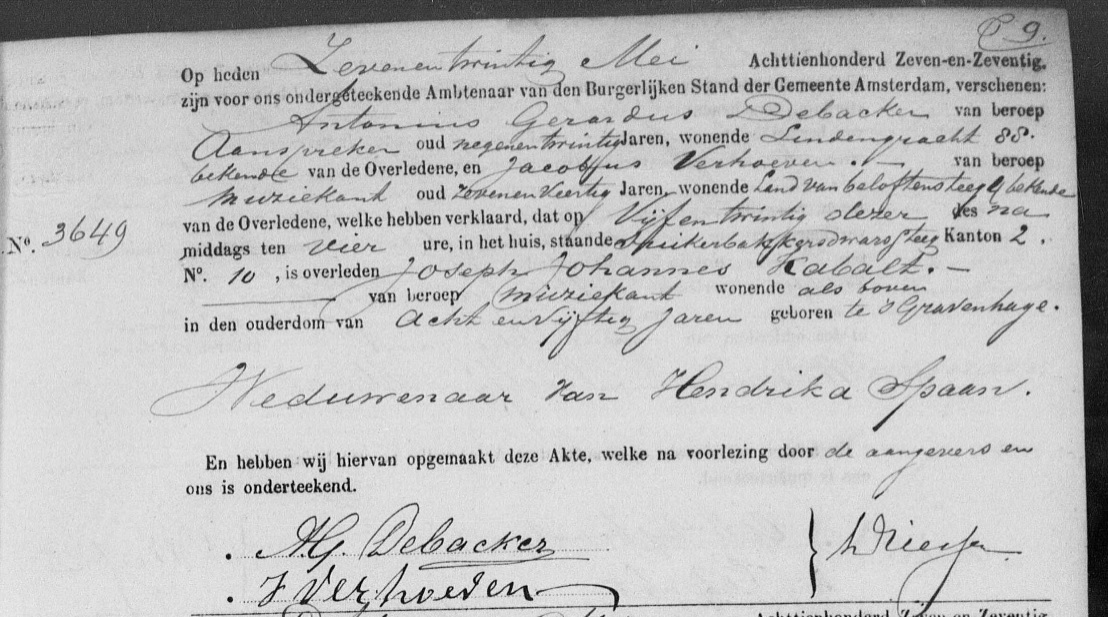 9.
Op heden Zevenentwintig Mei Achttienhonderd Zeven-en-Zeventig,
zijn voor ons ondergeteekende Ambtenaar van den Burgerlijken Stand der Gemeente Amsterdam, verschenen:
Antonius Gerardus Debacker van beroep
Aanspreker oud negenentwintig Jaren, wonende Lindengracht 88.
bekende van de Overledene, en Jacobus Verhoeven. — van beroep
muziekant oud Zevenenveertig Jaren, wonende Land van beloftensteeg 4 bekende
van de Overledene, welke hebben verklaard, dat op Vijfentwintig dezer des na
N°. 3649
middags ten vier ure, in het huis, staande Suikerbakkersdwarssteeg Kanton 2.
N°. 10, is overleden Joseph Johannes Kabalt. —
van beroep muziekant wonende als boven
in den ouderdom van Acht en Vijftig Jaren geboren te s Gravenhage.
Weduwenaar van Hendrika Spaan.
En hebben wij hiervan opgemaakt deze Akte, welke na voorlezing door de aangevers en
ons is onderteekend.
AG. Debacker
J Verhoeven
Achttienhonderd Zeven-en-Zeventig